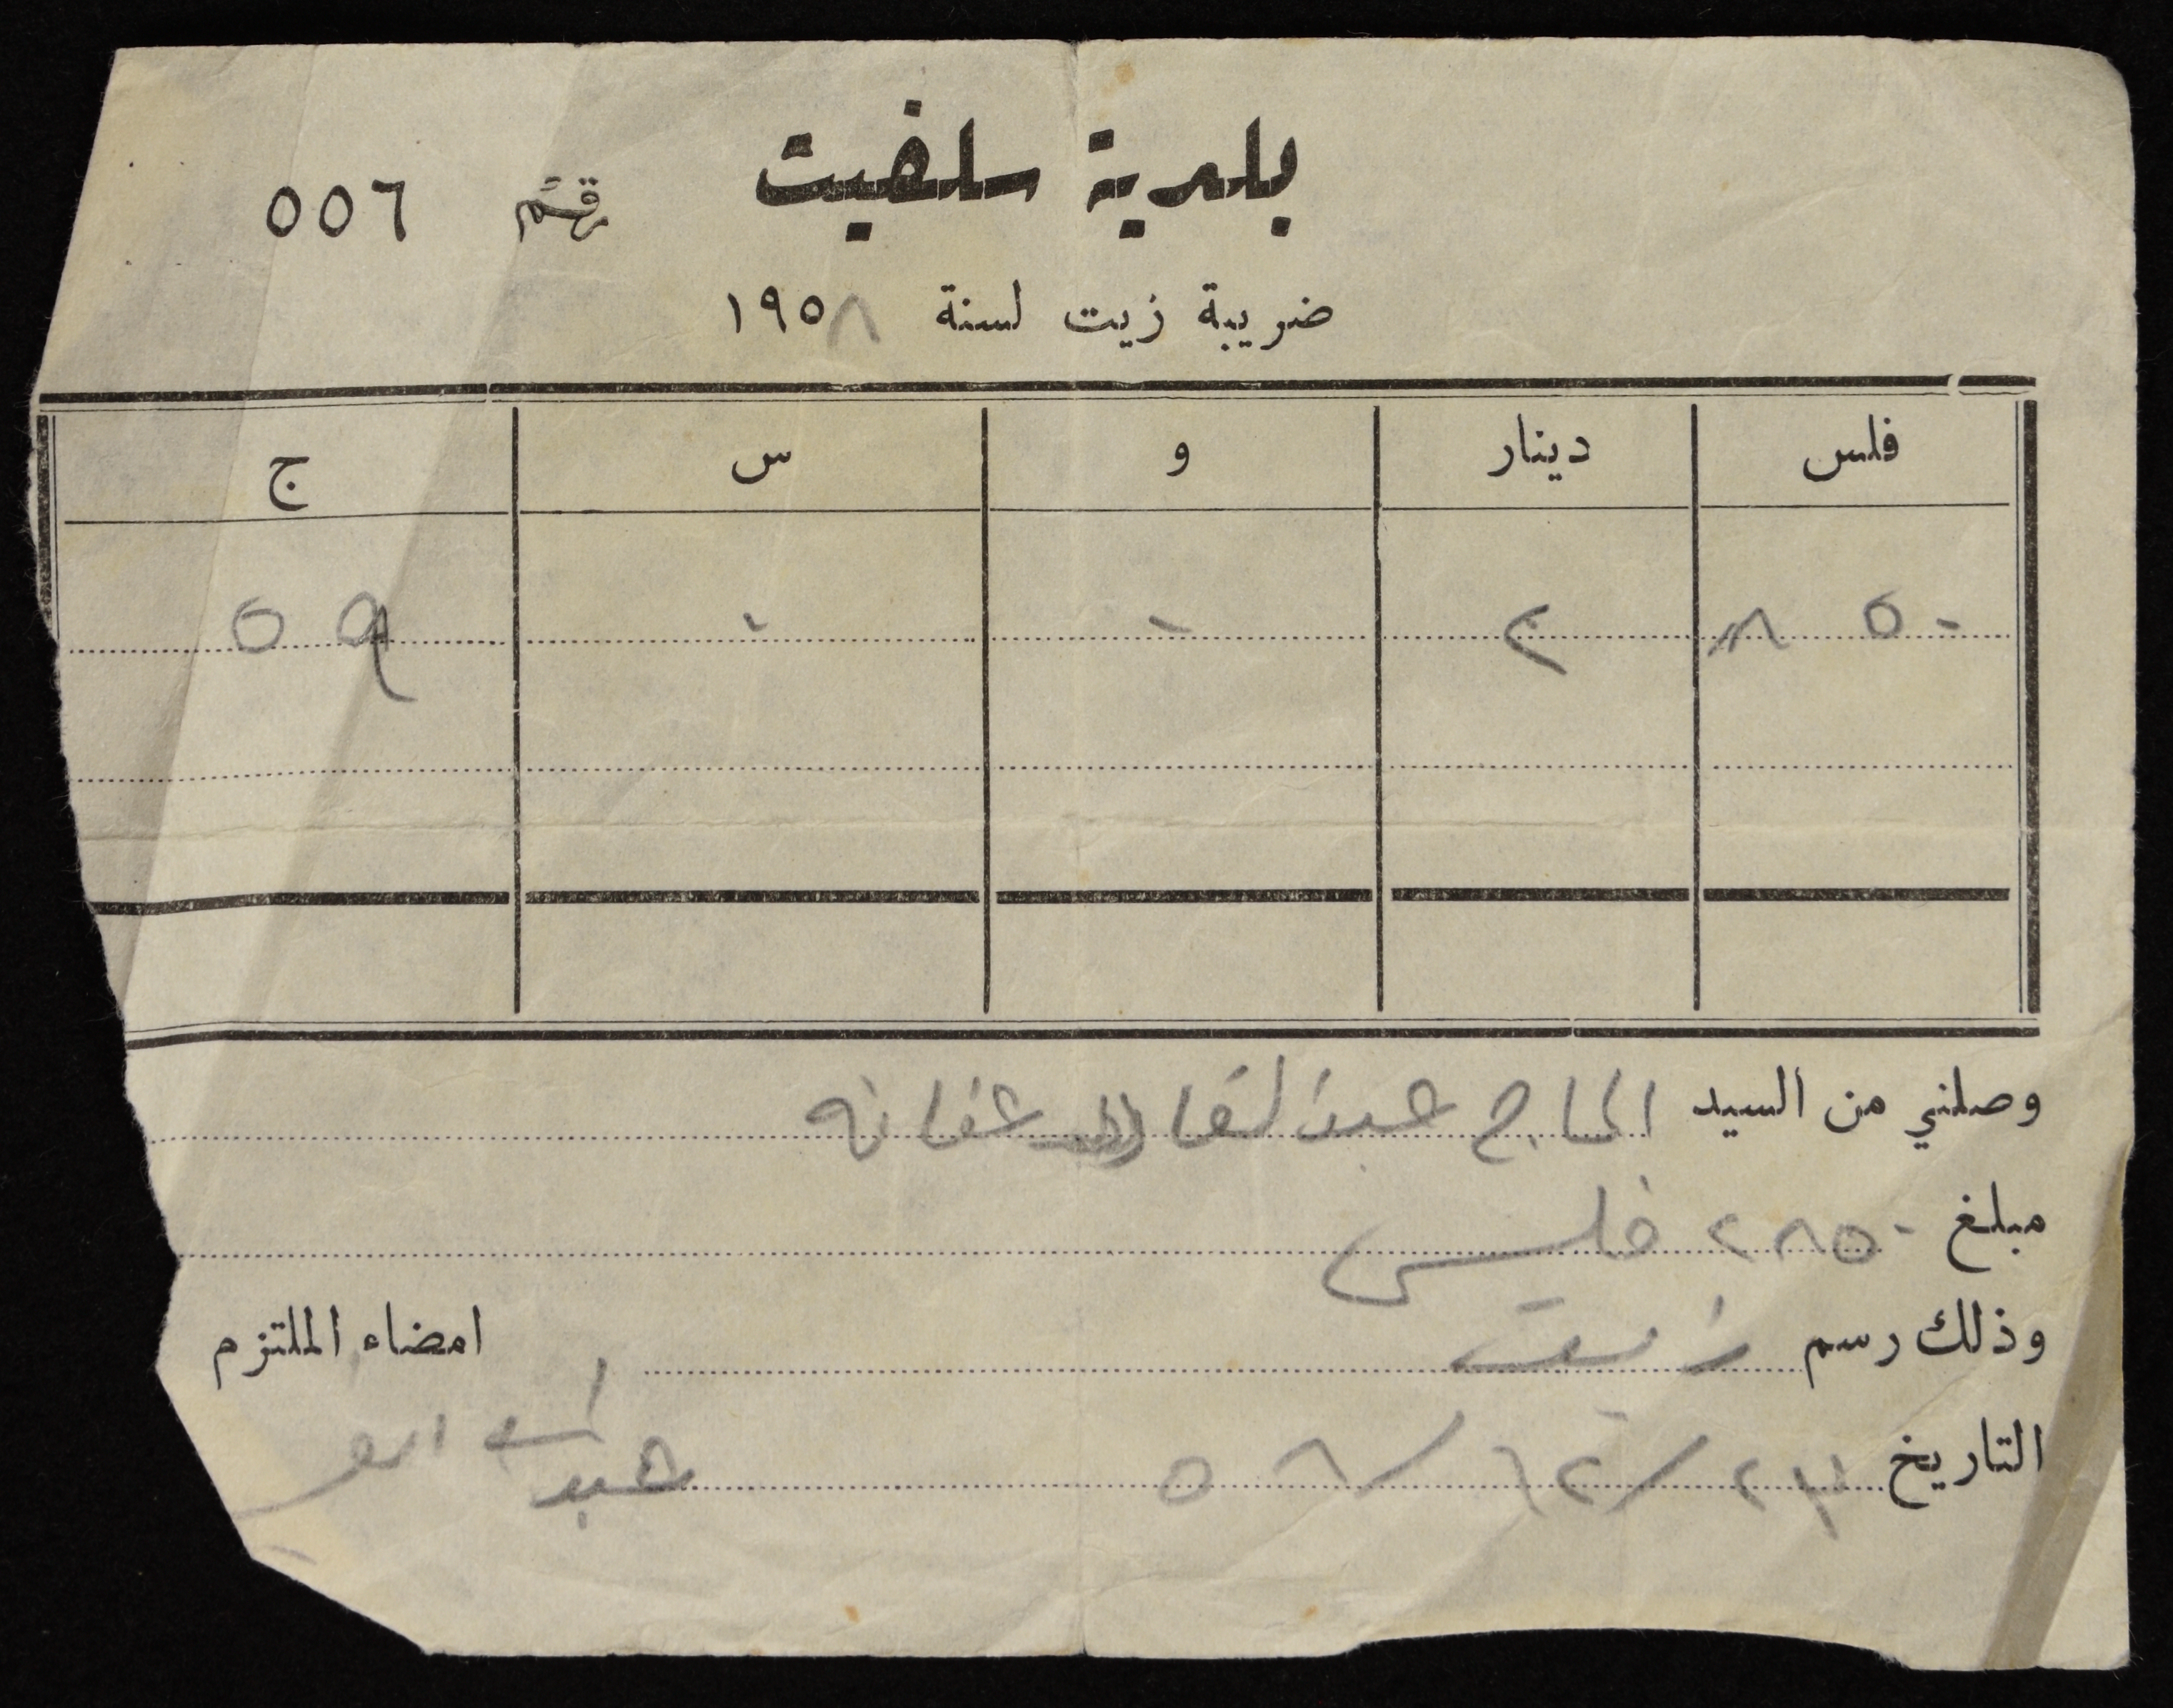 بلدية سلفيت
رقم ٥٥٦
ضريبة زيت لسنة ١٩٥٨
فلس دينار و س ج
٨٥٠ ٢ ٠ ٠ ٥٩
وصلني من السيد الحاج عبد القادر شقانه
مبلغ ٢٨٥٠ فلس
وذلك رسم زيت امضاء الملتزم
التاريخ /١٢/٥٨